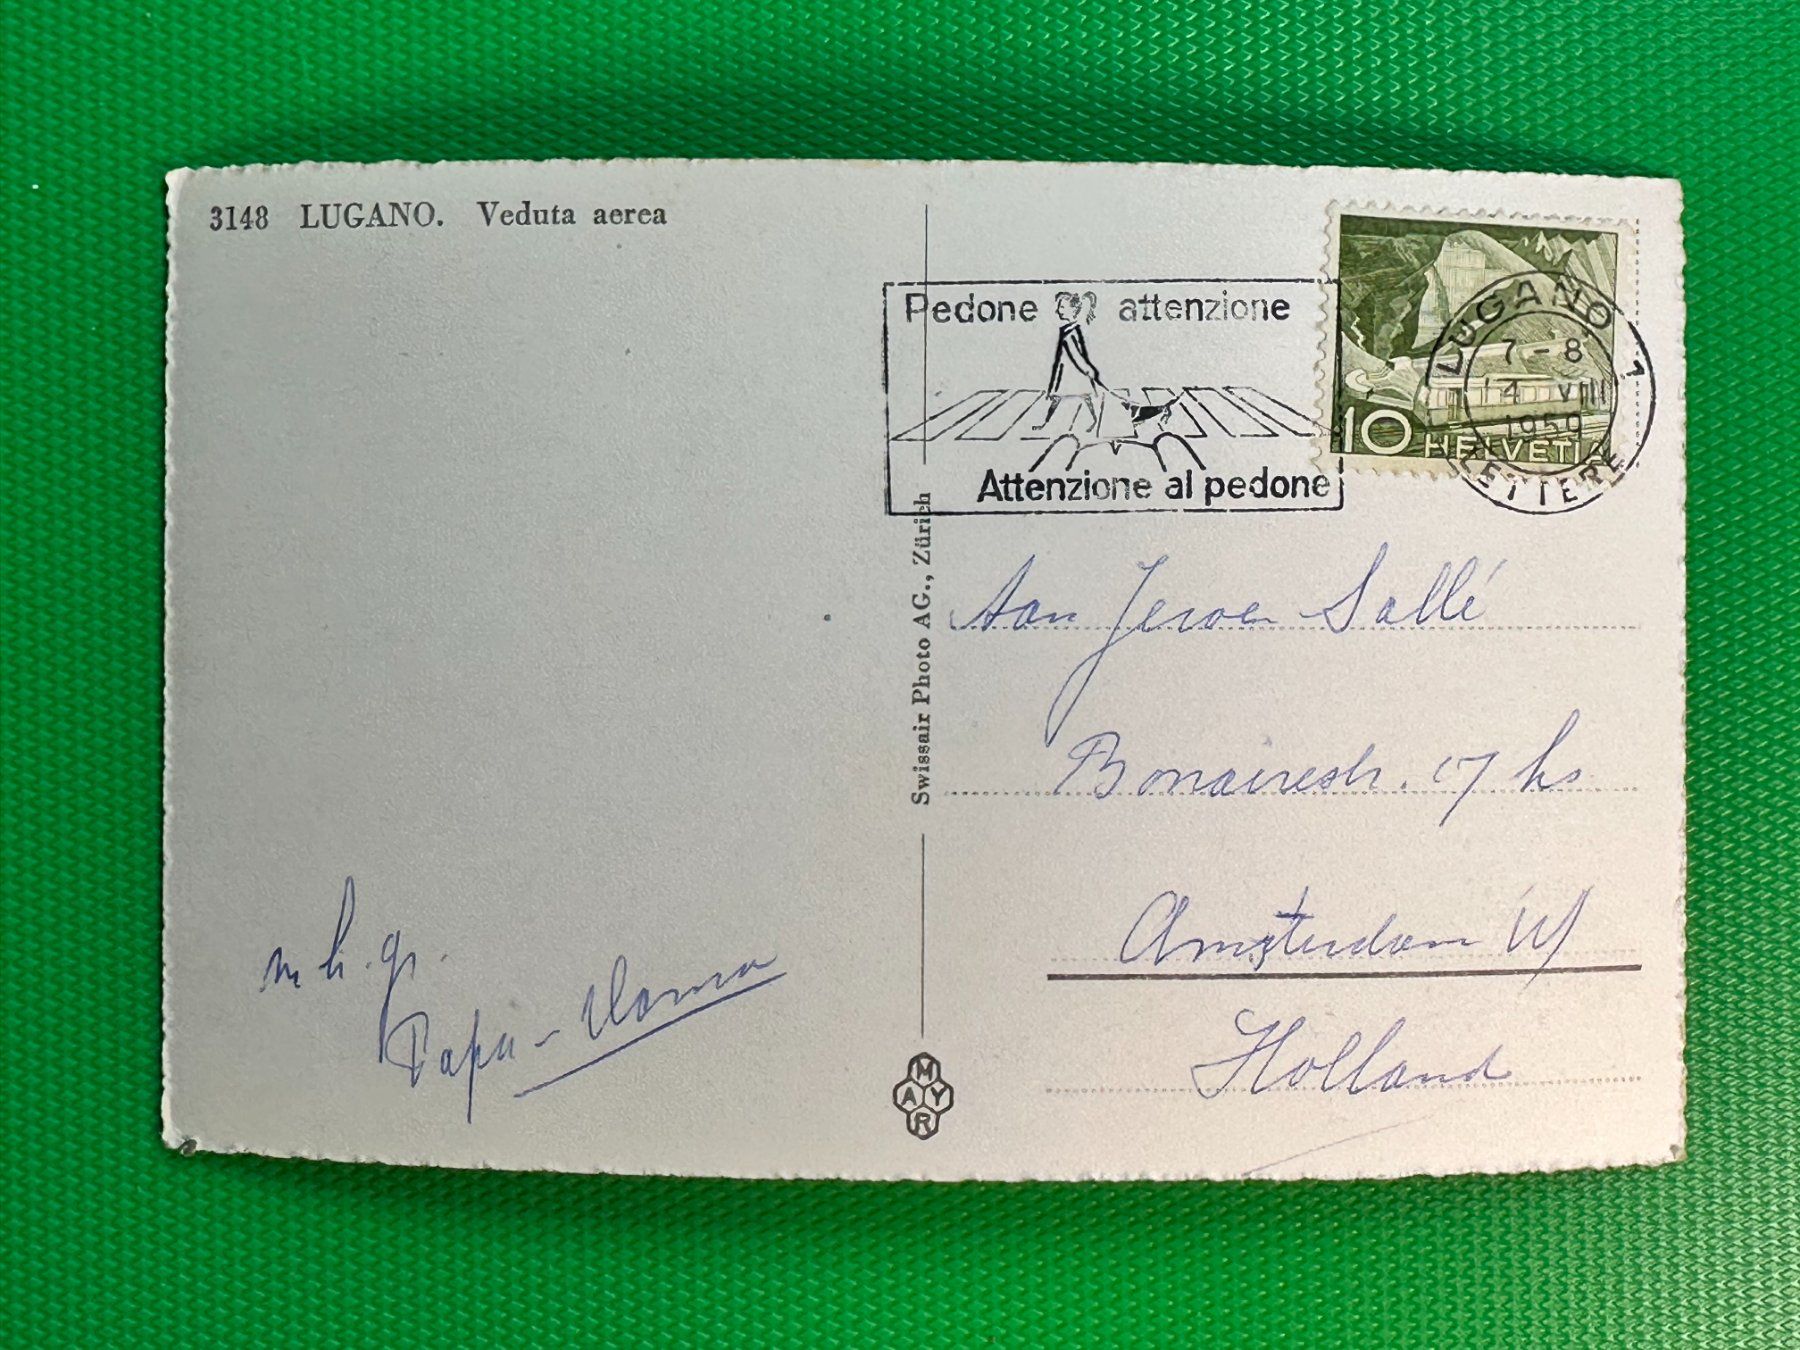 3148 LUGANO. Veduta aerea
Pedone attenzione
Attenzione al pedone
LUGANO 1
7-8
14 VIII
1959
LETTERE
10 HELVETIA
Swissair Photo AG., Zürich
Aan Jeroen Sallé
Bonairestr. 17 hs
Amsterdam W
Holland
m h. gr.
Papa - Mama
MAYR